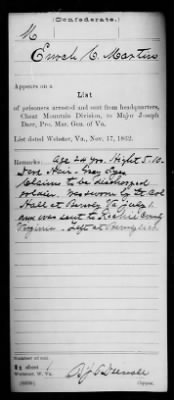 (Confederate.)
M
Enoch C. Martin
Appears on a
List
of prisoners arrested and sent from headquarters,
Cheat Mountain Division, to Major Joseph
Darr, Pro. Mar. Gen. of Va.
List dated Webster, Va., Nov. 17, 1862.
Remarks: Age 24 yrs. Hight 5.10
Dark Hair - Gray Eyes
Claims to be discharged
soldier. Was sworn by Lt Col
Hall at Beverly Va July
and was sent to Ritchie County
Virginia - Left at
Number of
Webster, W. Va.
Copyist.